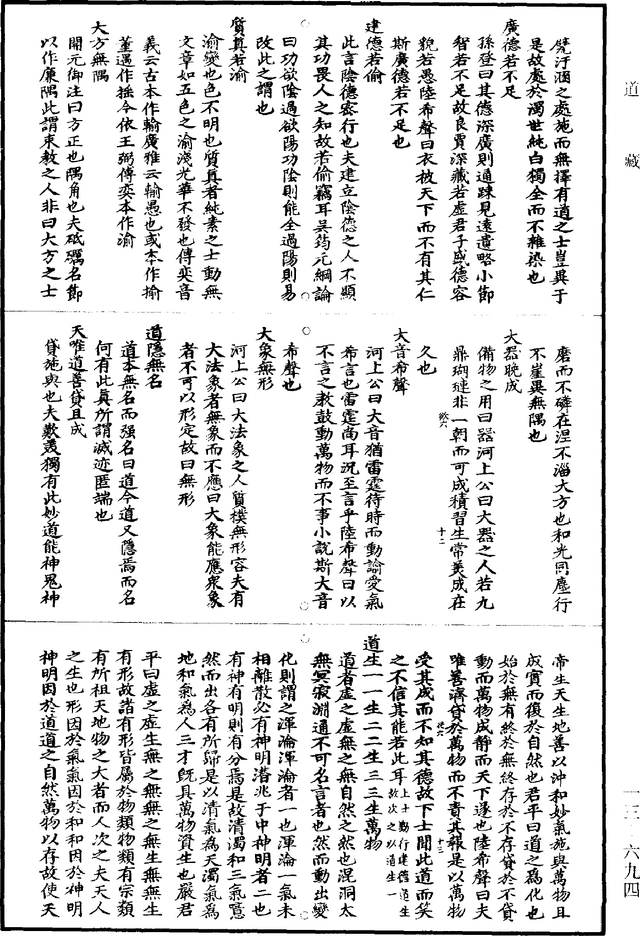 道藏
甓汙涸之處施而無擇有道之士豈異于
是故處於濁世純白獨全而不雜染也
廣德若不足
孫登曰其德深廣則通疎見遠遺略小節
智若不足故良賈深藏若虛君子盛德容
貌若愚陸希聲曰衣被天下而不有其仁
斯廣德若不足也
建德若偷
此言陰德密行也夫建立陰德之人不顯
其功畏人之知故若偷竊耳吳筠元綱論
曰功欲陰過欲陽功陰則能全過陽則易
改此之謂也
質真若渝
渝變也色不明也質真者純素之士動無
文章如五色之渝淺光華不發也傅奕音
義云古本作輸廣雅云輸愚也或本作揄
董遇作摇今依王弼傅奕本作渝
大方無隅
開元御注曰方正也隅角也夫砥礪名節
以作廉隅此謂束教之人非曰大方之士
磨而不磷在涅不淄大方也和光同塵行
不崖異無隅也
大器晚成
備物之用曰器河上公曰大器之人若九
鼎瑚璉非一朝而可成積習生常美成在
久也
大音希聲
河上公曰大音猶雷霆待時而動諭愛氣
希言也雷霆尚耳況至言乎陸希聲曰以
不言之教鼓動萬物而不事小說斯大音
希聲也
大象無形
河上公曰大法象之人質樸無形容夫有
大法象者無象而不應曰大象能應衆象
者不可以形定故曰無形
道隱無名
道本無名而强名曰道今道又隱焉而名
何有此真所謂滅迹匿端也
夫唯道善貸且成
貸施與也夫歎羡獨有此妙道能神鬼神
帝生天生地善以沖和妙氣施與萬物且
成實而復於自然也君平曰道之爲化也
始於無有終於無終存於不存貸於不貸
動而萬物成靜而天下遂也陸希聲曰夫
唯善濟貸於萬物而不責其報是以萬物
受其成而不知其德故下士聞此道而笑
之不信其能若此耳上士勤行建德道生一故次之以道生一
道生一一生二二生三三生萬物
道者虛之虛無之無自然之然也混洞太
無冥寂淵通不可名言者也然而動出變
化則謂之渾淪渾淪者一也渾淪一氣未
相離散必有神明潛兆于中神明者二也
有神有明則有分焉是故清濁和三氣噫
然而出各有所歸是以清氣爲天濁氣爲
地和氣爲人三才既具萬物資生也嚴君
平曰虛之虛生無之無無之無生無無生
有形故諸有形皆屬於物類物類有宗類
有所祖天地物之大者而人次之夫天人
之生也形因於氣氣因於和和因於神明
神明因於道道之自然萬物以存故使天
一三—六九四